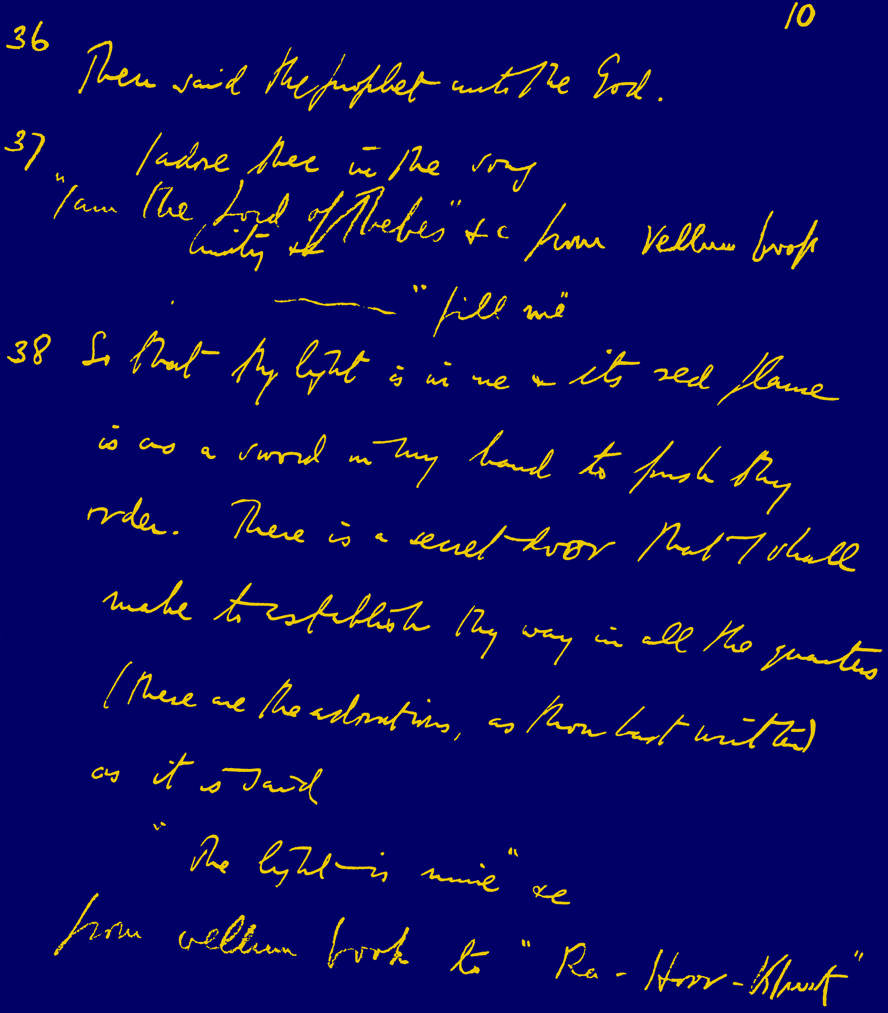 10
36
Then said the prophet unto the God.
37 I adore thee in the song
"I am the Lord of Thebes" &c from vellum book
unity &c
"fill me"
38 So that thy light is in me & its red flame
is as a sword in my hand to push thy
order. There is a secret door that I shall
make to establish thy way in all the quarters
(these are the adorations, as thou hast written)
as it is said
"The light is mine" &c
from vellum book to "Ra-Hoor-Khuit"